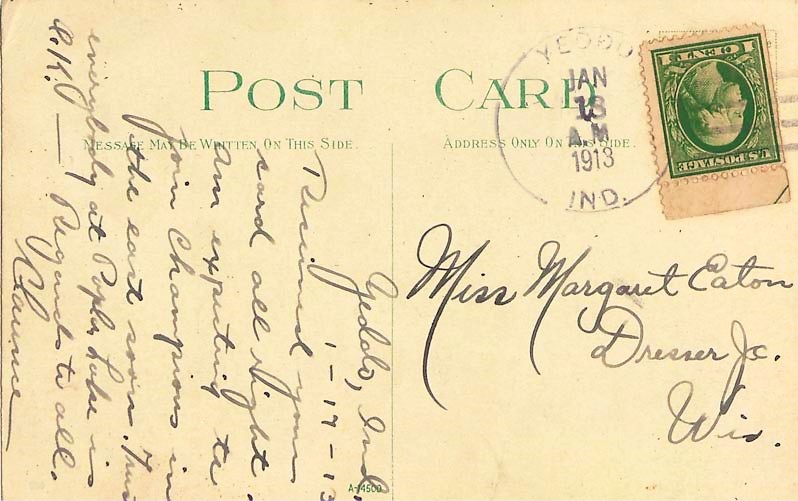 POST CARD
MESSAGE MAY BE WRITTEN ON THIS SIDE.
ADDRESS ONLY ON THIS SIDE.
YEDDO
JAN
18
A.M
1913
IND.
U.S. POSTAGE
1 CENT 1
Yeddo, Ind.
1-17-13
Received your
card all right.
Am expecting to
join Champions in
the east soon. Trust
everybody at Poplar Lake is
O.K. — Regards to all.
Clarence
Miss Margaret Eaton
Dresser Jc.
Wis.
A-14500